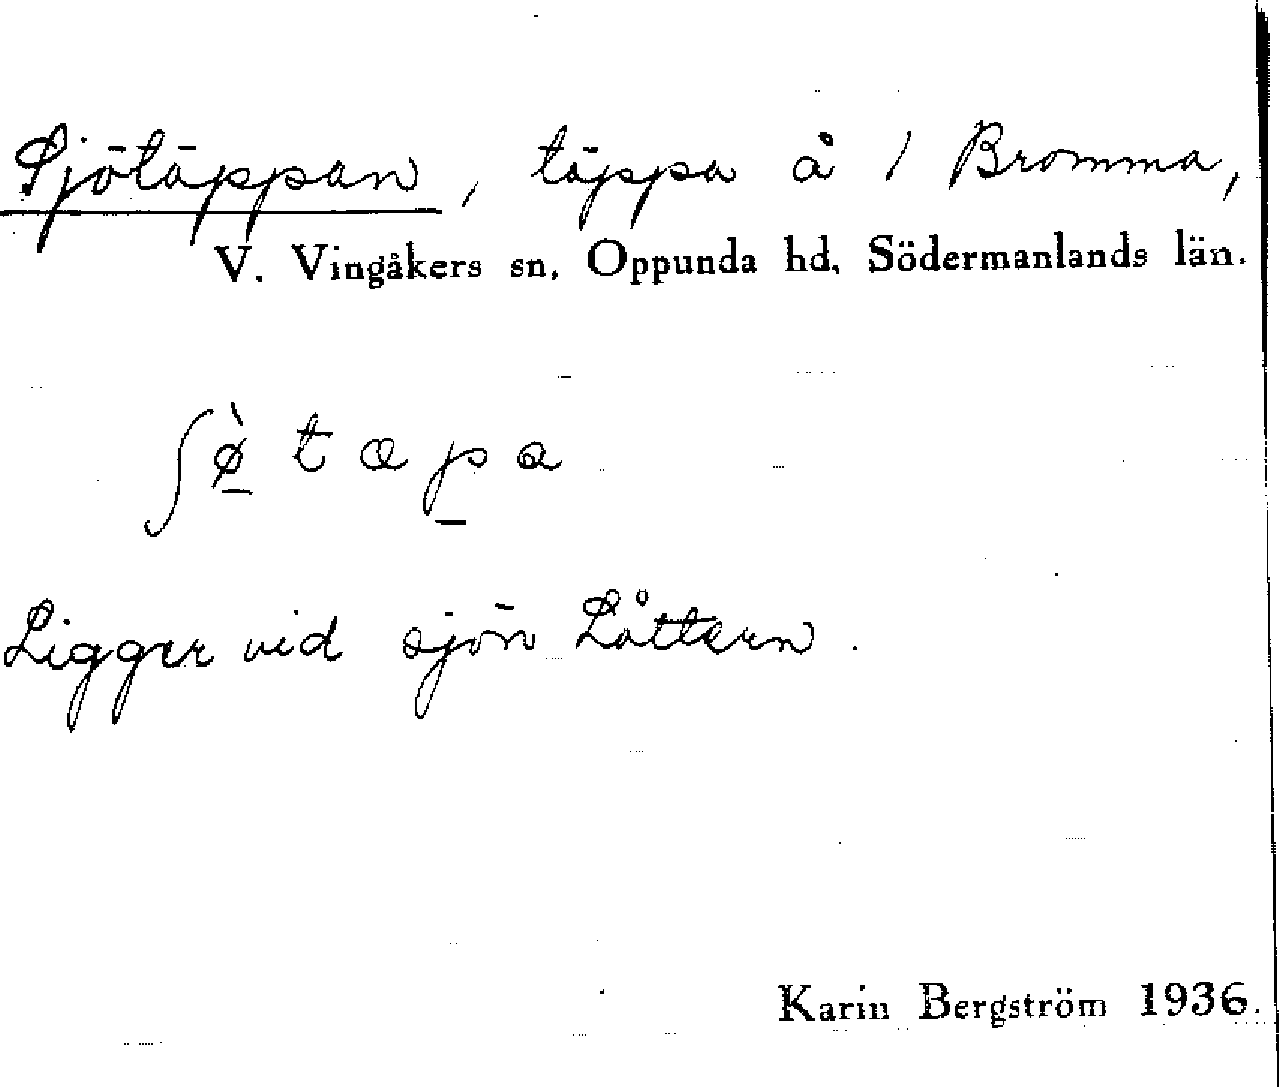 Sjötäppan, täppa å / Bromma,
V. Vingåkers sn, Oppunda hd, Södermanlands län.
ʃø̱̀tæp̱a
Ligger vid sjön Låttern.
Karin Bergström 1936.